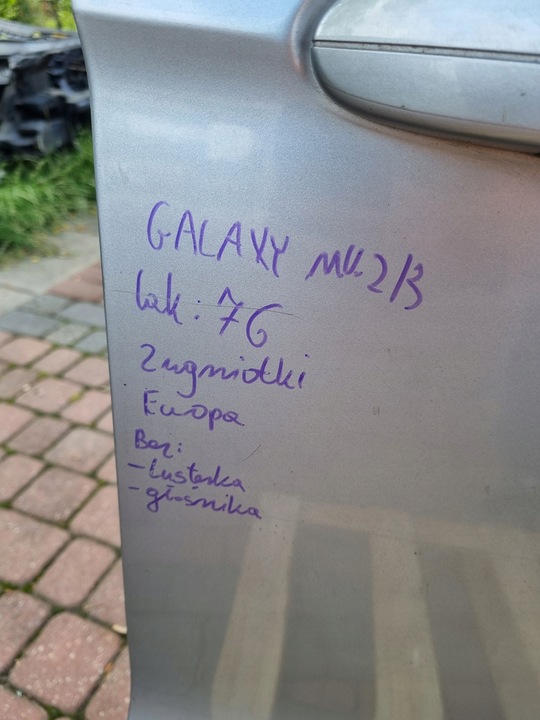 GALAXY MK. 2/3
lak: 76
2 wgniotki
Europa
Bez:
- lusterka
- głośnika